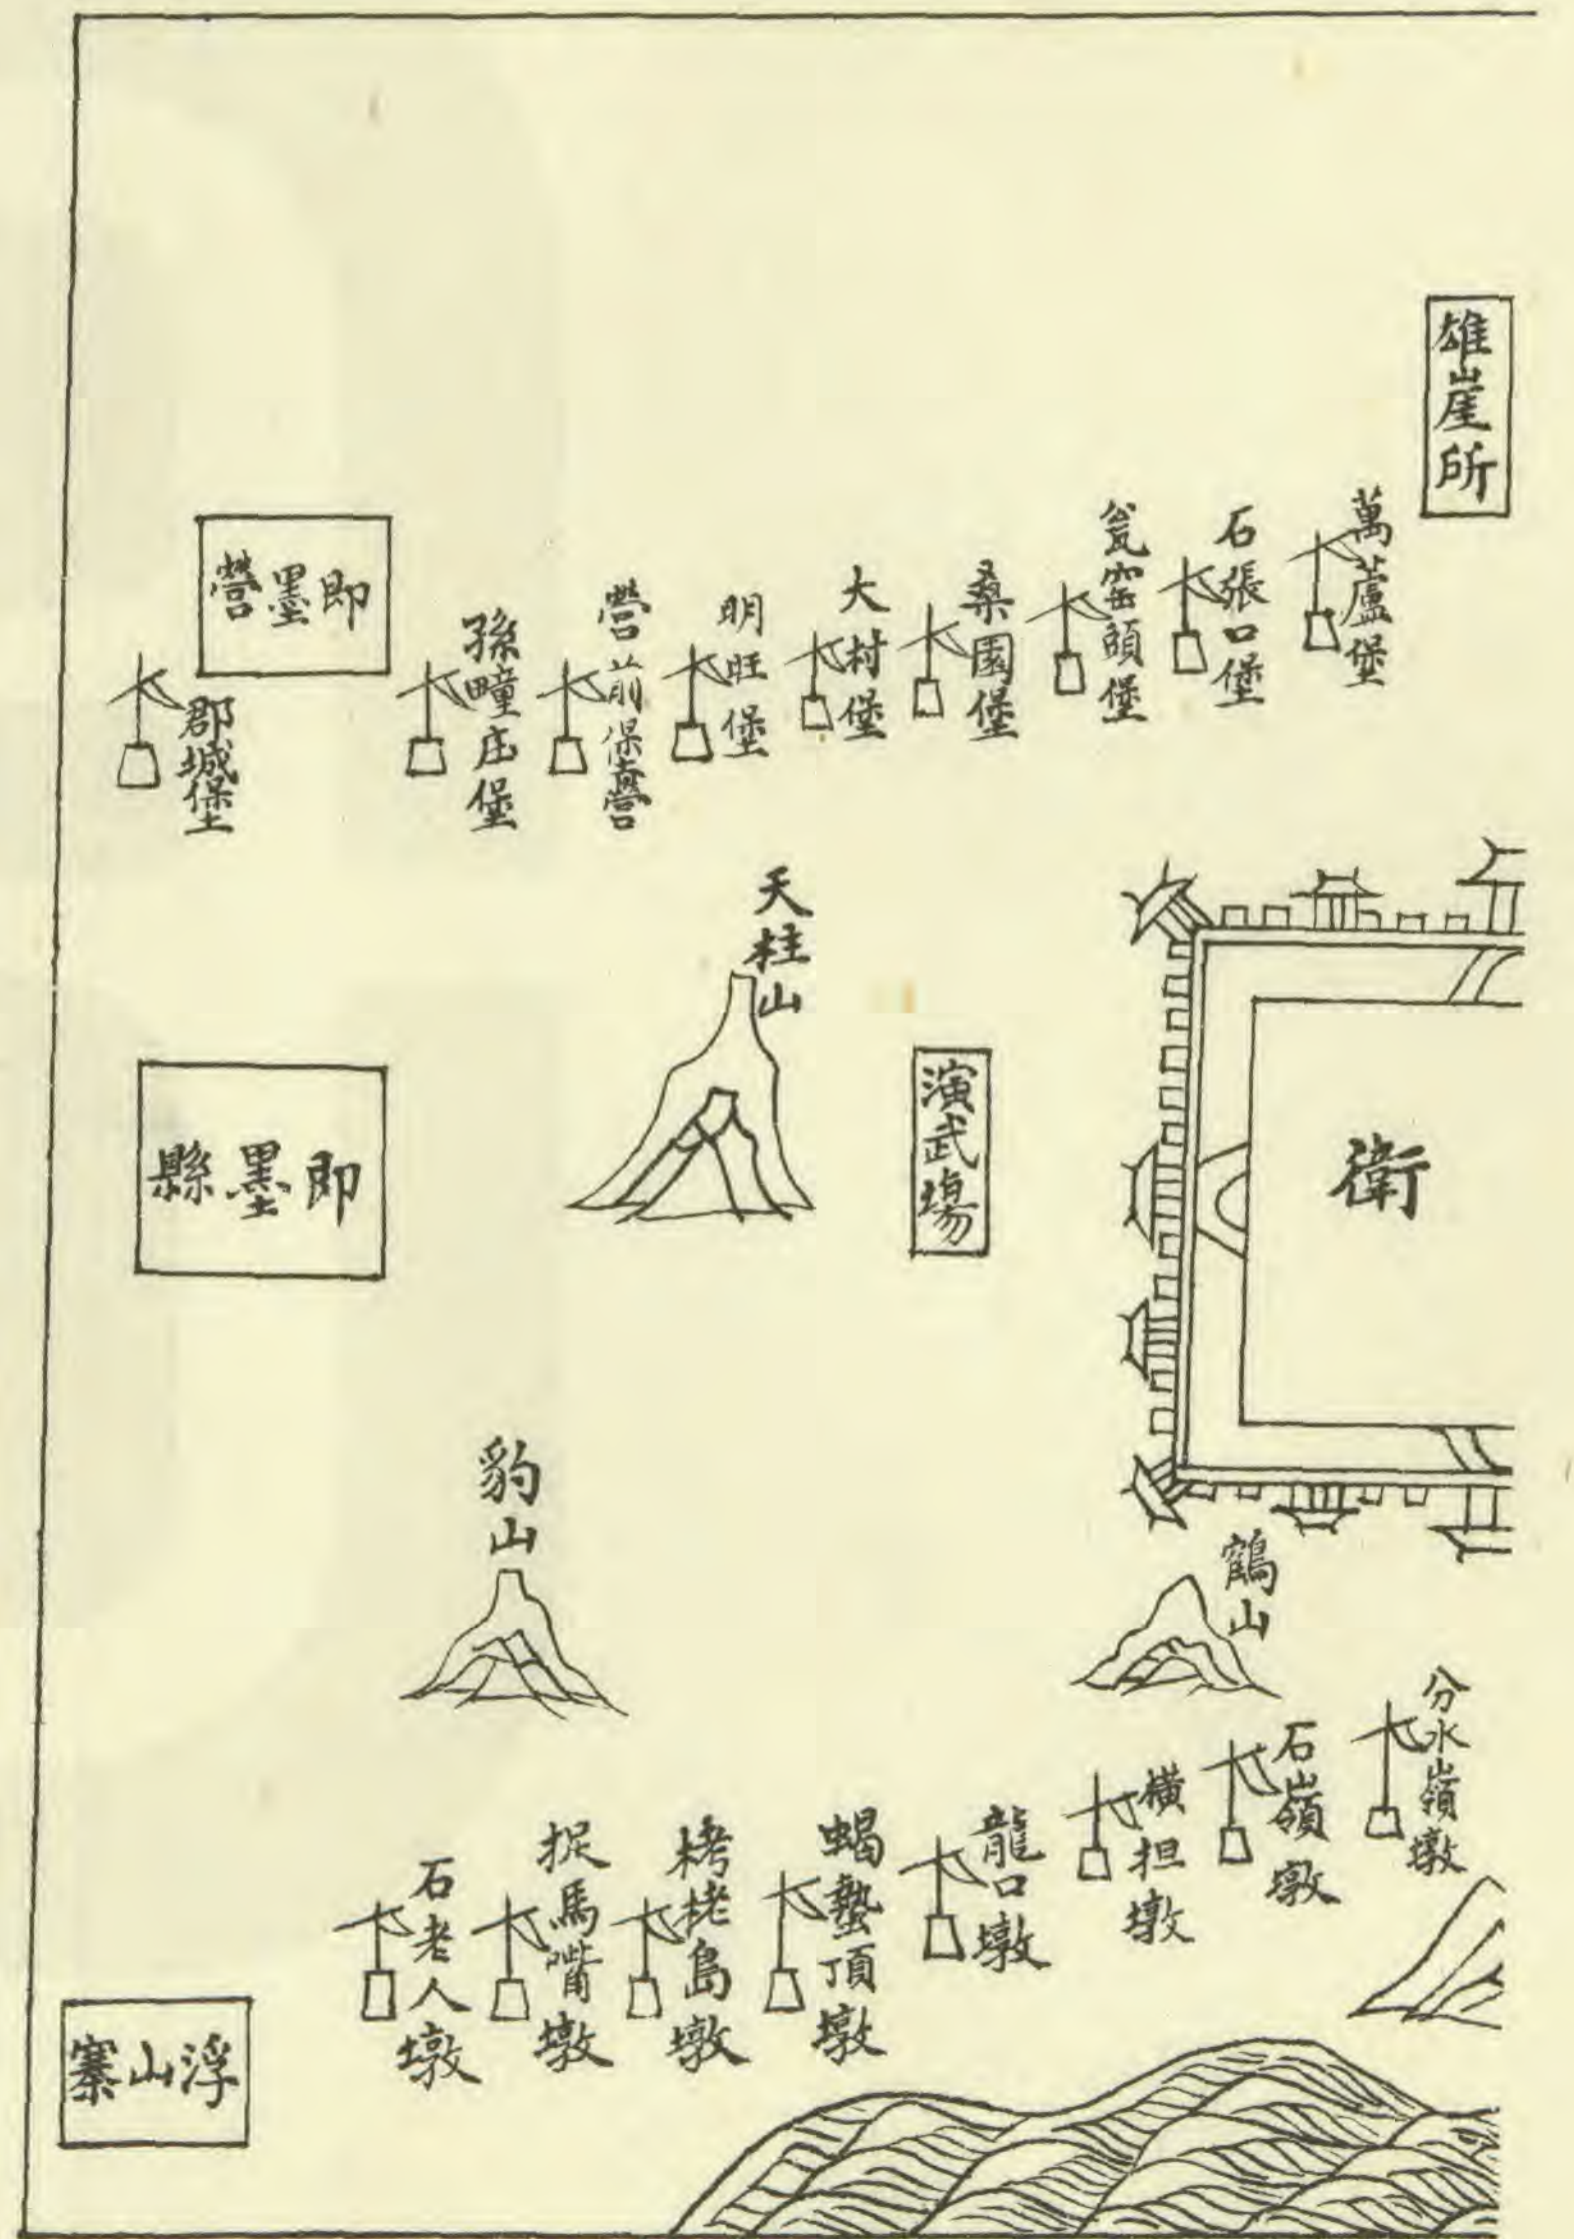 雄崖所
萬蘆堡
石張口堡
瓮窑頭堡
桑園堡
大村堡
明旺堡
營前保臺營
孫疃庄堡
即墨營
郡城堡
衛
演武場
天柱山
即墨縣
鶴山
豹山
分水嶺墩
石嶺墩
橫担墩
龍口墩
蝎螫頂墩
栲栳島墩
捉馬嘴墩
石老人墩
浮山寨